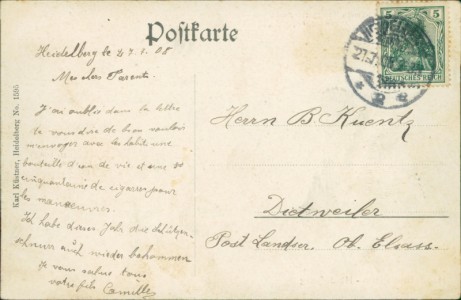 Postkarte
5 5
DEUTSCHES REICH
Heidelberg le 27.7.08
Mes chers Parents
J'ai oublier dans la lettre
de vous dire de bien vouloir
m'envoyer avec les habits une
bouteille d'eau de vie et une
cinquantaine de cigares pour
les manoeuvres.
Ich habe dieses Jahr die Schützen-
schnur auch wieder bekommen
Je vous salue tous
votre fils Camille
Herrn B. Kuentz
Dietweiler
Post Landser. Ob. Elsass.
Karl Küstner, Heidelberg No. 1595